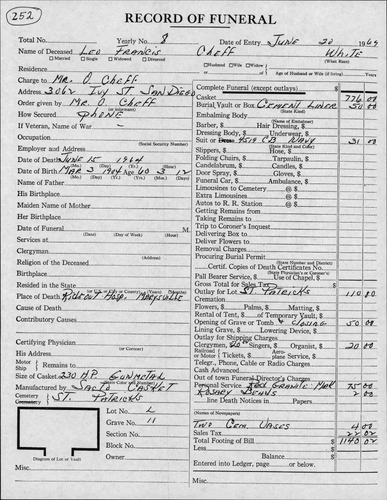 252
RECORD OF FUNERAL
Total No. Yearly No. 8 Date of Entry June 20 19
Name of Deceased Leo Francis Cheff White
Married Single Widowed Divorced Husband Wife Widow (What Race)
Residence or of Age of Husband or Wife (if living) Years
Charge to Mr. O. Cheff
Address 3062 Ivy St. San Diego
Order given by Mr. O. Cheff
(or informant)
How Secured Phone
If Veteran, Name of War -
Occupation
(Social Security Number)
Employer and Address
Date of Death June 15 1964
(Mo.) (Day) (Yr.) (Hour)
Date of Birth Mar 3 1904 Age 60 3 12
(Mo.) (Day) (Yr.) (Yrs.) (Mo.) (Days)
Name of Father
His Birthplace
Maiden Name of Mother
Her Birthplace
Date of Funeral
(Date) (Day of Week) (Hour) M.
Services at
Clergyman
Religion of the Deceased
Birthplace
Resided in the State
(or U.S. or City or County) (Years) (Months)
Place of Death Rideout Hosp. Marysville
Cause of Death
Contributory Causes
Certifying Physician
(or Coroner)
His Address
Motor
Ship Remains to
Size of Casket 230 H.P. Gunmetal
Manufactured by Sacto Casket
Cemetery
Crematory St. Patricks
Lot No. L
Grave No. 11
Section No.
Block No.
Owner
Diagram of Lot or Vault
Misc.
Complete Funeral (except outlays) $
Casket 776 00
Burial Vault or Box Cement Liner 50 00
(State Kind)
Embalming Body
(Name of Embalmer)
Barber, $ Hair Dressing, $
Dressing Body, $ Underwear, $
Suit or Dress 4519 CB Navy 31 00
(State Kind and Color)
Slippers, $ Hose, $
Folding Chairs, $ Tarpaulin, $
Candelabrum, $ Candles, $
Door Spray, $ Gloves, $
Funeral Car, $ Ambulance, $
Limousines to Cemetery @ $
Extra Limousines @ $
Autos to R. R. Station @ $
Getting Remains from
Taking Remains to
Trip to Coroner's Inquest
Delivering Box to
Deliver Flowers to
Removal Charges
Procuring Burial Permit
(State Number and District)
Certif. Copies of Death Certificates No.
(State Physician's or Coroner's)
Pall Bearer Service, $ Use of Chapel, $
Gross Total for Sales Tax $
Outlay for Lot St. Patricks 110 00
Cremation
Flowers, $ Palms, $ Matting, $
Rental of Tent, $ of Temporary Vault, $
Opening of Grave or Tomb & Closing 50 00
Lining Grave, $ Lowering Device, $
Outlay for Shipping Charges
Clergymen, 20 00 Singers, $ Organist, $ 20 00
Railroad
or Motor Tickets, $ Aero-
plane Service, $
Telegr., Phone, Cable or Radio Charges
Cash Advanced
Out of town Funeral Director's Charges
Personal Service Red Granite Mkr 75 00
Rosary Beads 2 00
line Death Notices in Papers $
(Names of Newspapers)
Two Cem. Vases 4 00
Sales Tax 22 02
Total Footing of Bill $ 1140 02
Less
Balance $
Entered into Ledger, page or below.
Misc.